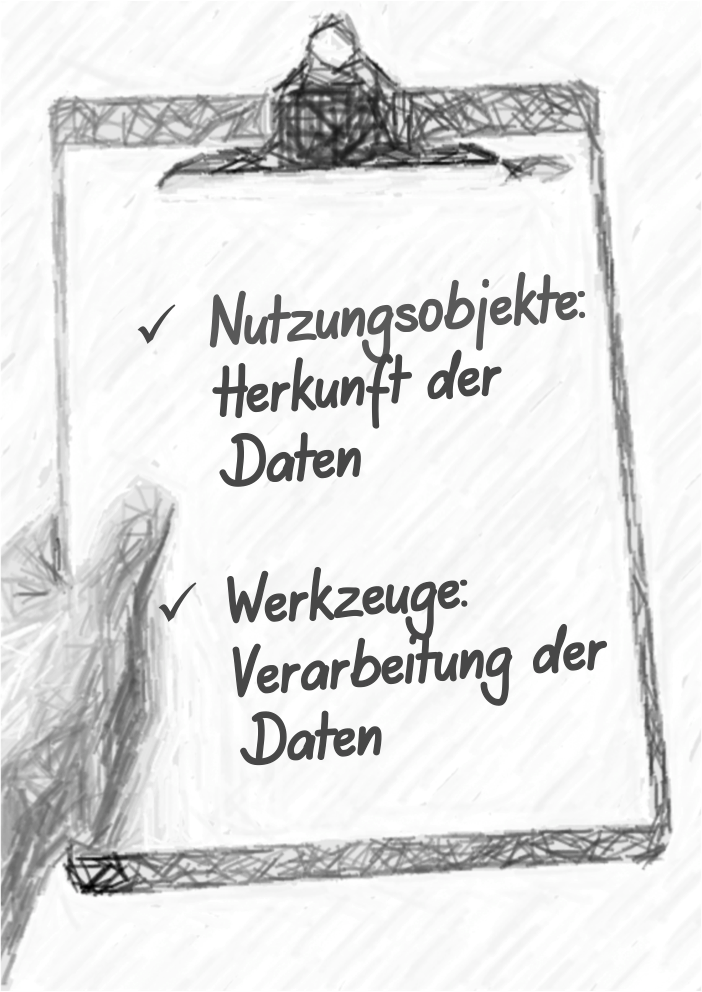 ✓ Nutzungsobjekte:
Herkunft der
Daten
✓ Werkzeuge:
Verarbeitung der
Daten